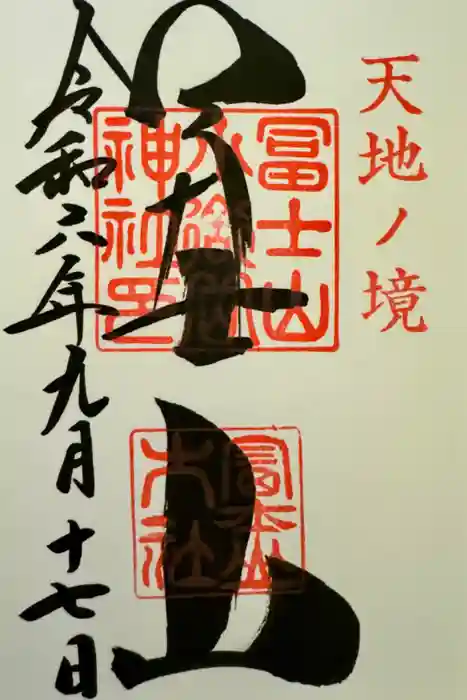 天地ノ境
冨士山
冨士山
小御嶽
神社印
令和六年九月十七日